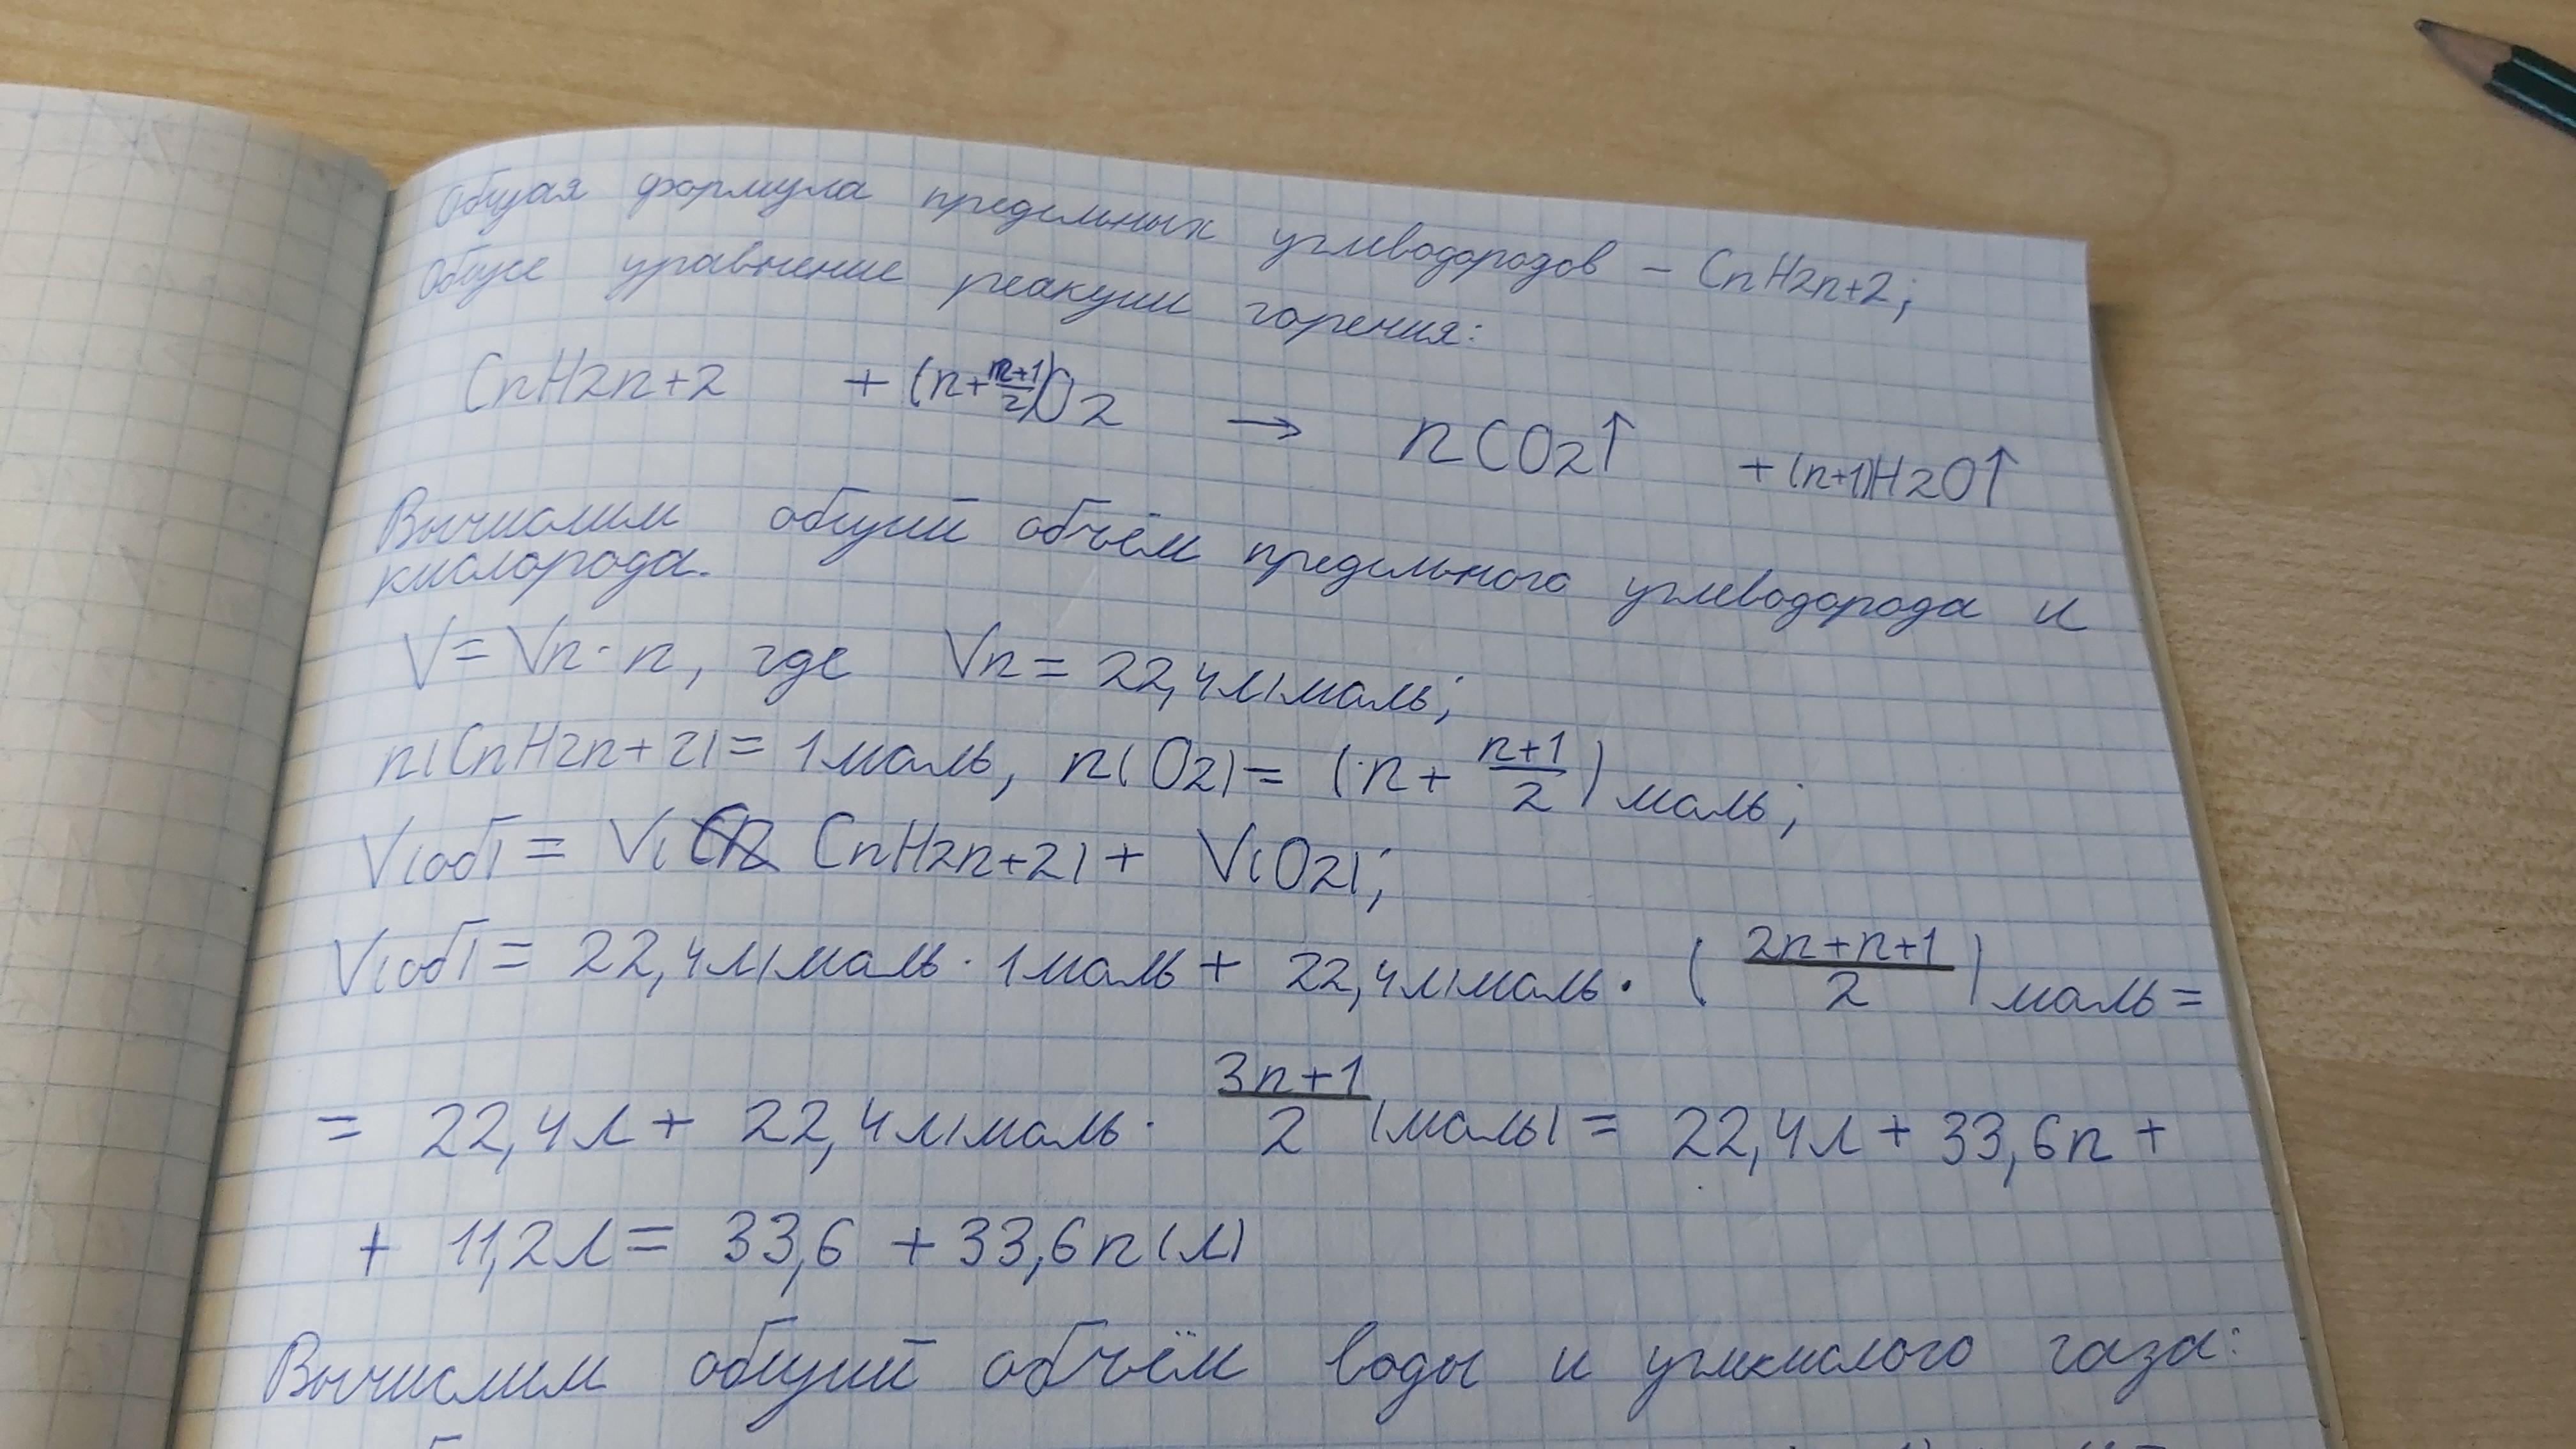 Общая формула предельных углеводородов – CnH2n+2;
Общее уравнение реакции горения:
CnH2n+2 + (n+n+1/2)O2 → nCO2↑ + (n+1)H2O↑
Вычислим общий объём предельного углеводорода и
кислорода.
V = Vn · n, где Vn = 22,4л/моль;
n(CnH2n+2) = 1 моль, n(O2) = (n + n+1/2) моль;
V(об) = V( CnH2n+2) + V(O2);
V(об) = 22,4л/моль · 1 моль + 22,4л/моль · (2n+n+1/2) моль =
= 22,4л + 22,4л/моль · 3n+1/2 (моль) = 22,4л + 33,6n +
+ 11,2л = 33,6 + 33,6n(л)
Вычислим общий объём воды и углекислого газа: